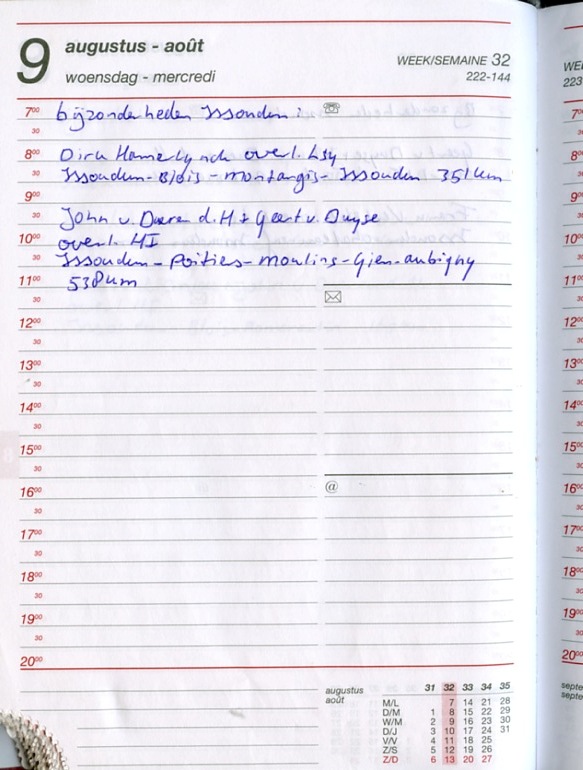 9
augustus - août
woensdag - mercredi
WEEK/SEMAINE 32
222-144
7⁰⁰ bijzonderheden Issoudun :
30
8⁰⁰ Dirk Hamerlynck overl. LS4
30 Issoudun - Blois - montargis - Issoudun 351 km
9⁰⁰
30 John v. Doren d.H + Geert v. Duyse
10⁰⁰ overl. HI
30 Issoudun - Poitiers - moulins - Gien - aubigny
11⁰⁰ 538 km
30
12⁰⁰
30
13⁰⁰
30
14⁰⁰
30
15⁰⁰
30
16⁰⁰ @
30
17⁰⁰
30
18⁰⁰
30
19⁰⁰
30
20⁰⁰
augustus
août
31 32 33 34 35
M/L 7 14 21 28
D/M 1 8 15 22 29
W/M 2 9 16 23 30
D/J 3 10 17 24 31
V/V 4 11 18 25
Z/S 5 12 19 26
Z/D 6 13 20 27
WE
223
7⁰
30
8⁰
30
9⁰
30
10⁰
30
11⁰
30
12⁰
30
13⁰
30
14⁰
30
15⁰
30
16⁰
30
17⁰
30
18⁰
30
19⁰
30
20⁰
septe
septe